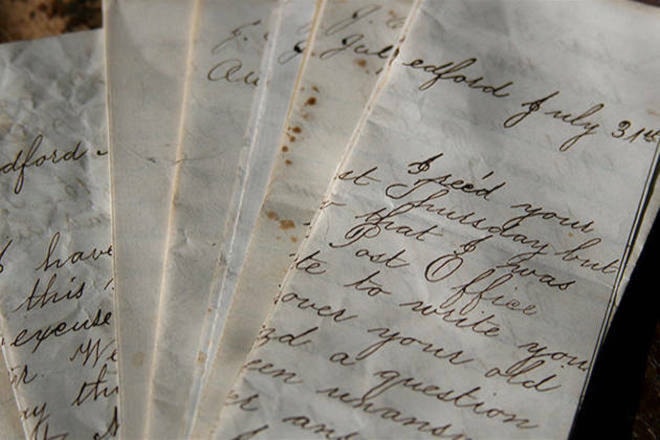 dford
I have
this
excuse
r. We
ay th
J.
Au
J.
Jul
edford July 31st
I rec'd your
st Thursday but
that I was
Post Office
te to write you
over your old
nd a question
een unansw
er an